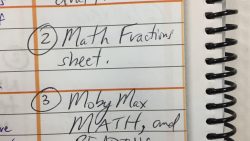 ② Math Fractions
sheet.
③ Moby Max
MATH, and